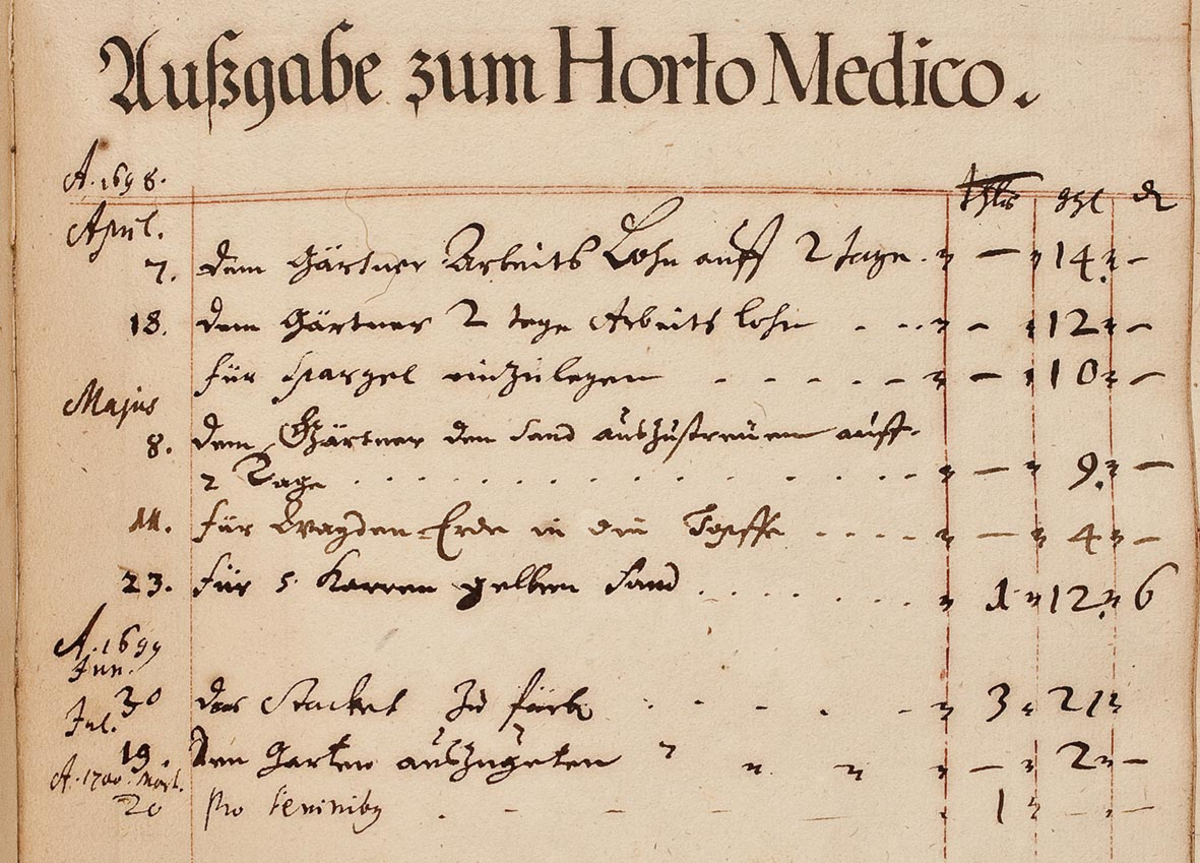 Außgabe zum Horto Medico.
A. 1698. thlr ggl d
April.
7. dem Gärtner Arbeits Lohn auff 2 tage. " — " 14 " —
18. dem Gärtner 2 tage Arbeits lohn . . . " — " 12 " —
für Spargel einzulegen - - - - - " — " 10 " —
Majus
8. dem Gärtner den sand auszustreuen auff
2 Tage . . . . . . . . . . . . " — " 9 " —
11. für Erde in die Töpffe . . . . " — " 4 " —
23. für 5 Karren gelben sand . . . . . . . " 1 " 12 " 6
A. 1699
Jun.
30 das Stacket zu färben . - - . - " 3 " 21 "
Jul.
19. den Garten auszugäten " " " " — " 2 " —
A. 1700. Mart.
20 pro seminibus . - - - . " 1 " — . —